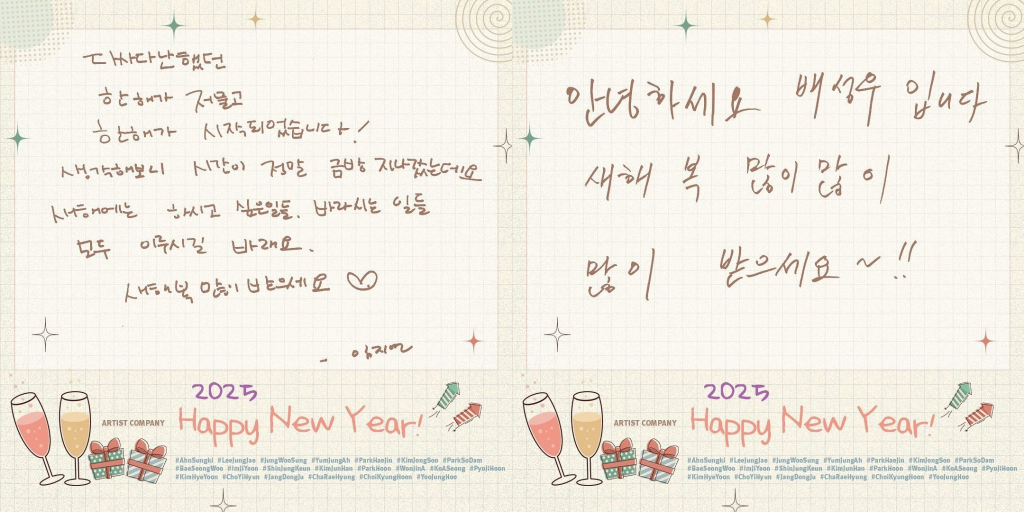 다사다난했던
한해가 저물고
한해가 시작되었습니다!
생각해보니 시간이 정말 금방 지나갔는데요
새해에는 하시고 싶은일들, 바라시는 일들
모두 이루시길 바래요.
새해복 많이 받으세요 ♡
- 임지연
2025
ARTIST COMPANY
Happy New Year!
#AhnSungki #LeeJungJae #JungWooSung #YumJungAh #ParkHaeJin #KimJongSoo #ParkSoDam
#BaeSeongWoo #ImJiYeon #ShinJungKeun #KimJunHan #ParkHoon #WonJinA #KoASeong #PyoJiHoon
#KimHyeYoon #ChoYiHyun #JangDongJu #ChaRaeHyung #ChoiKyungHoon #YooJungHoo
안녕하세요 배성우 입니다
새해 복 많이 많이
많이 받으세요~!!
2025
ARTIST COMPANY
Happy New Year!
#AhnSungki #LeeJungJae #JungWooSung #YumJungAh #ParkHaeJin #KimJongSoo #ParkSoDam
#BaeSeongWoo #ImJiYeon #ShinJungKeun #KimJunHan #ParkHoon #WonJinA #KoASeong #PyoJiHoon
#KimHyeYoon #ChoYiHyun #JangDongJu #ChaRaeHyung #ChoiKyungHoon #YooJungHoo